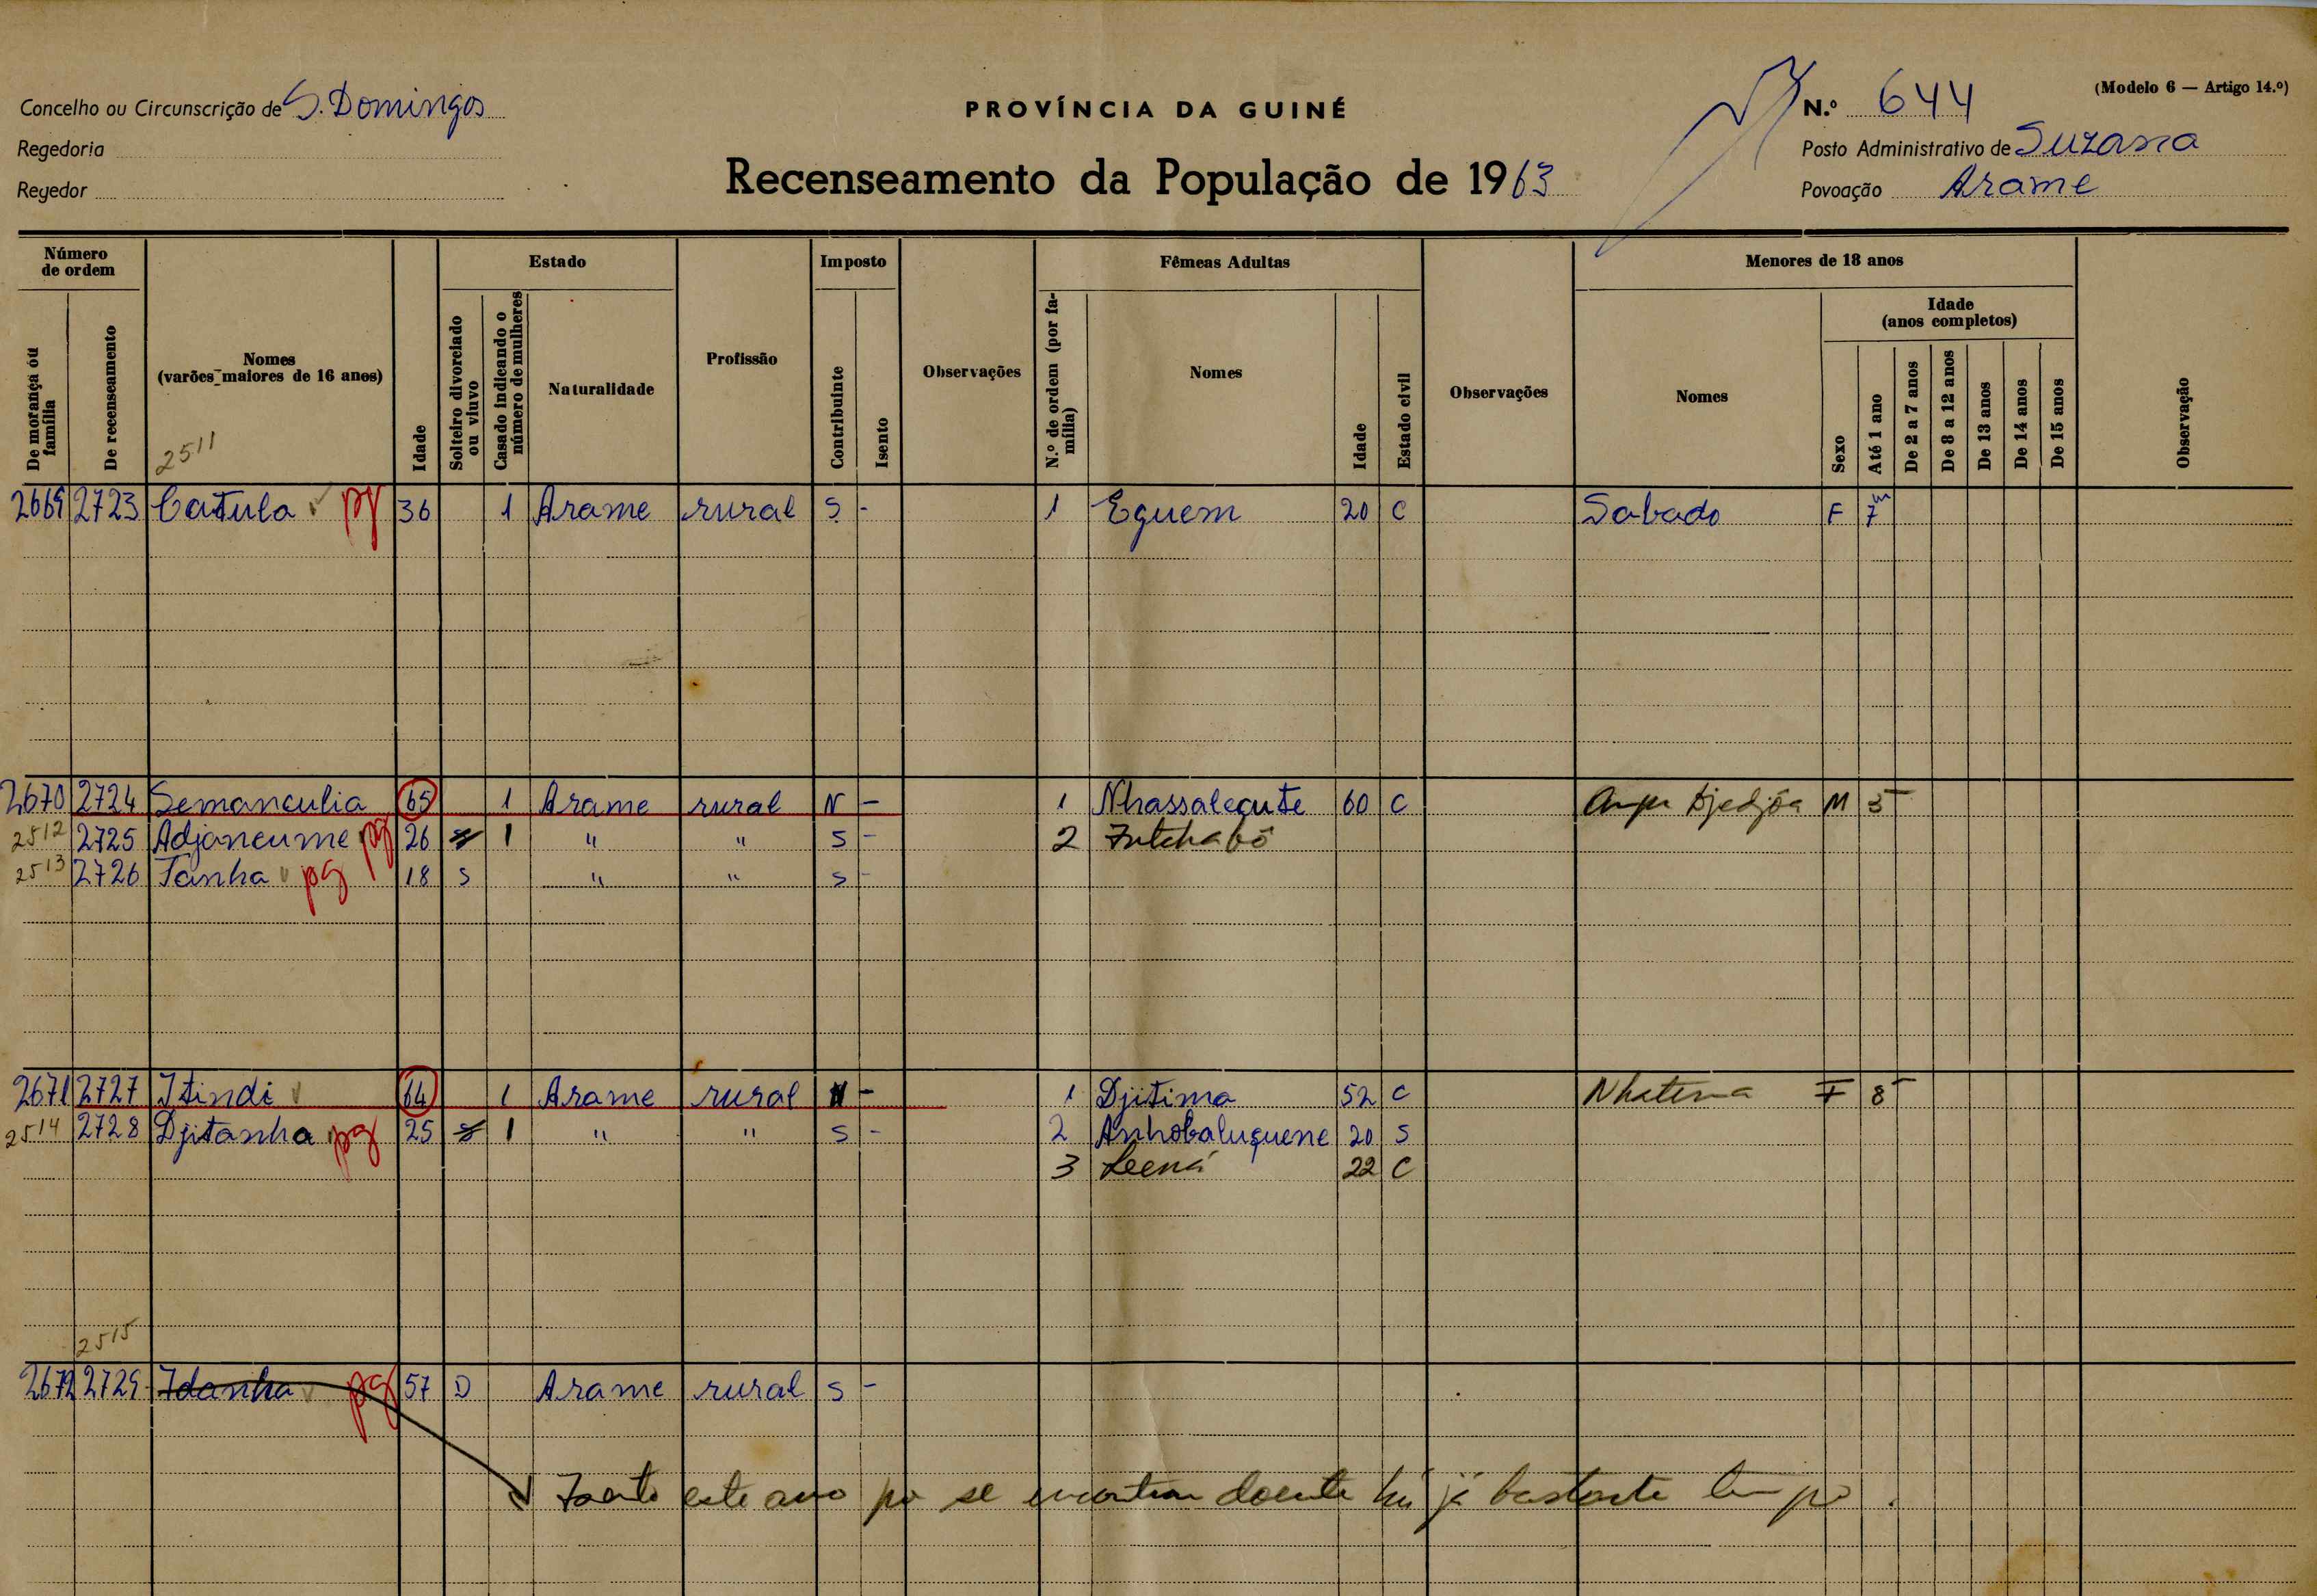 Concelho ou Circunscrição de S. Domingos
Regedoria
Regedor
PROVÍNCIA DA GUINÉ
Recenseamento da População de 1963
(Modelo 6 — Artigo 14.º)
N.º 644
Posto Administrativo de Suzana
Povoação Arame
Número de ordem
De morança ou família
De recenseamento
Nomes (varões maiores de 16 anos)
2511
Idade
Estado
Solteiro divorciado ou viuvo
Casado indicando o número de mulheres
Naturalidade
Profissão
Imposto
Contribuinte
Isento
Observações
Fêmeas Adultas
N.º de ordem (por família)
Nomes
Idade
Estado civil
Observações
Menores de 18 anos
Nomes
Sexo
Idade (anos completos)
Até 1 ano
De 2 a 7 anos
De 8 a 12 anos
De 13 anos
De 14 anos
De 15 anos
Observação
2669 2723 Catula pg 36 1 Arame rural S - 1 Eguem 20 C Sabado F 7 m
2670 2724 Semanculia 65 1 Arame rural N - 1 Nhassalecute 60 C Djedjóa M 5
2512 2725 Adjaneume pg 26 1 " " S - 2 Intchabó
2513 2726 Tanha pg 18 S " " S -
2671 2727 Itindi 64 1 Arame rural N - 1 Djitima 52 C Nhatena F 8
2514 2728 Djitanha pg 25 1 " " S - 2 Anhobaluguene 20 S
3 Leená 22 C
2515
2672 2729 Idanha pg 57 D Arame rural S -
Isento este ano por se encontrar doente há já bastante tempo.